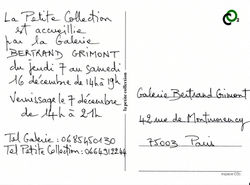 La Petite Collection
est accueillie
par la Galerie
BERTRAND GRIMONT
du jeudi 7 au samedi
16 décembre de 14h à 19h
Vernissage le 7 décembre
de 14h à 21h
Tel Galerie : 0685450130
Tel Petite Collection : 0664312244
la petite collection
Galerie Bertrand Grimont
42 rue de Montmorency
75003 Paris